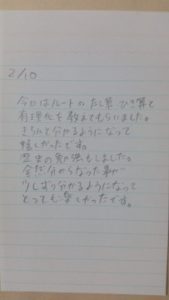 2/10
今日はルートのたし算ひき算と
有理化を教えてもらいました。
きちんと分かるようになって
嬉しかったです。
歴史の勉強もしました。
全然分からなった事が
少しずつ分かるようになって
とっても楽しかったです。